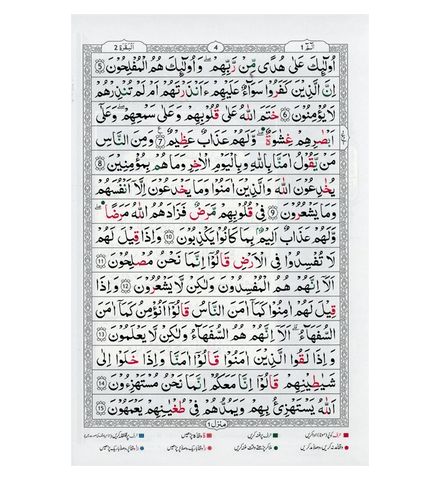 البقرة ٢
٤
الٓمّٓ ١
اُولٰٓئِكَ عَلٰى هُدًى مِّنْ رَّبِّهِمْ ۗ وَاُولٰٓئِكَ هُمُ الْمُفْلِحُوْنَ ﴿٥﴾
اِنَّ الَّذِيْنَ كَفَرُوْا سَوَآءٌ عَلَيْهِمْ ءَاَنْذَرْتَهُمْ اَمْ لَمْ تُنْذِرْهُمْ
لَا يُؤْمِنُوْنَ ﴿٦﴾ خَتَمَ اللّٰهُ عَلٰى قُلُوْبِهِمْ وَعَلٰى سَمْعِهِمْ ۗ وَعَلٰٓى
اَبْصَارِهِمْ غِشَاوَةٌ ۖ وَّلَهُمْ عَذَابٌ عَظِيْمٌ ﴿٧﴾ وَمِنَ النَّاسِ
مَنْ يَّقُوْلُ اٰمَنَّا بِاللّٰهِ وَبِالْيَوْمِ الْاٰخِرِ وَمَا هُمْ بِمُؤْمِنِيْنَ ﴿٨﴾
يُخٰدِعُوْنَ اللّٰهَ وَالَّذِيْنَ اٰمَنُوْا ۚ وَمَا يَخْدَعُوْنَ اِلَّآ اَنْفُسَهُمْ
وَمَا يَشْعُرُوْنَ ﴿٩﴾ فِيْ قُلُوْبِهِمْ مَّرَضٌ ۙ فَزَادَهُمُ اللّٰهُ مَرَضًا ۚ
وَلَهُمْ عَذَابٌ اَلِيْمٌۢ ۙ بِمَا كَانُوْا يَكْذِبُوْنَ ﴿١٠﴾ وَاِذَا قِيْلَ لَهُمْ
لَا تُفْسِدُوْا فِي الْاَرْضِ ۙ قَالُوْٓا اِنَّمَا نَحْنُ مُصْلِحُوْنَ ﴿١١﴾
اَلَآ اِنَّهُمْ هُمُ الْمُفْسِدُوْنَ وَلٰكِنْ لَّا يَشْعُرُوْنَ ﴿١٢﴾ وَاِذَا
قِيْلَ لَهُمْ اٰمِنُوْا كَمَآ اٰمَنَ النَّاسُ قَالُوْٓا اَنُؤْمِنُ كَمَآ اٰمَنَ
السُّفَهَآءُ ۗ اَلَآ اِنَّهُمْ هُمُ السُّفَهَآءُ وَلٰكِنْ لَّا يَعْلَمُوْنَ ﴿١٣﴾
وَاِذَا لَقُوا الَّذِيْنَ اٰمَنُوْا قَالُوْٓا اٰمَنَّا ۖ وَاِذَا خَلَوْا اِلٰى
شَيٰطِيْنِهِمْ ۙ قَالُوْٓا اِنَّا مَعَكُمْ ۙ اِنَّمَا نَحْنُ مُسْتَهْزِءُوْنَ ﴿١٤﴾
اَللّٰهُ يَسْتَهْزِئُ بِهِمْ وَيَمُدُّهُمْ فِيْ طُغْيَانِهِمْ يَعْمَهُوْنَ ﴿١٥﴾
منزل ١